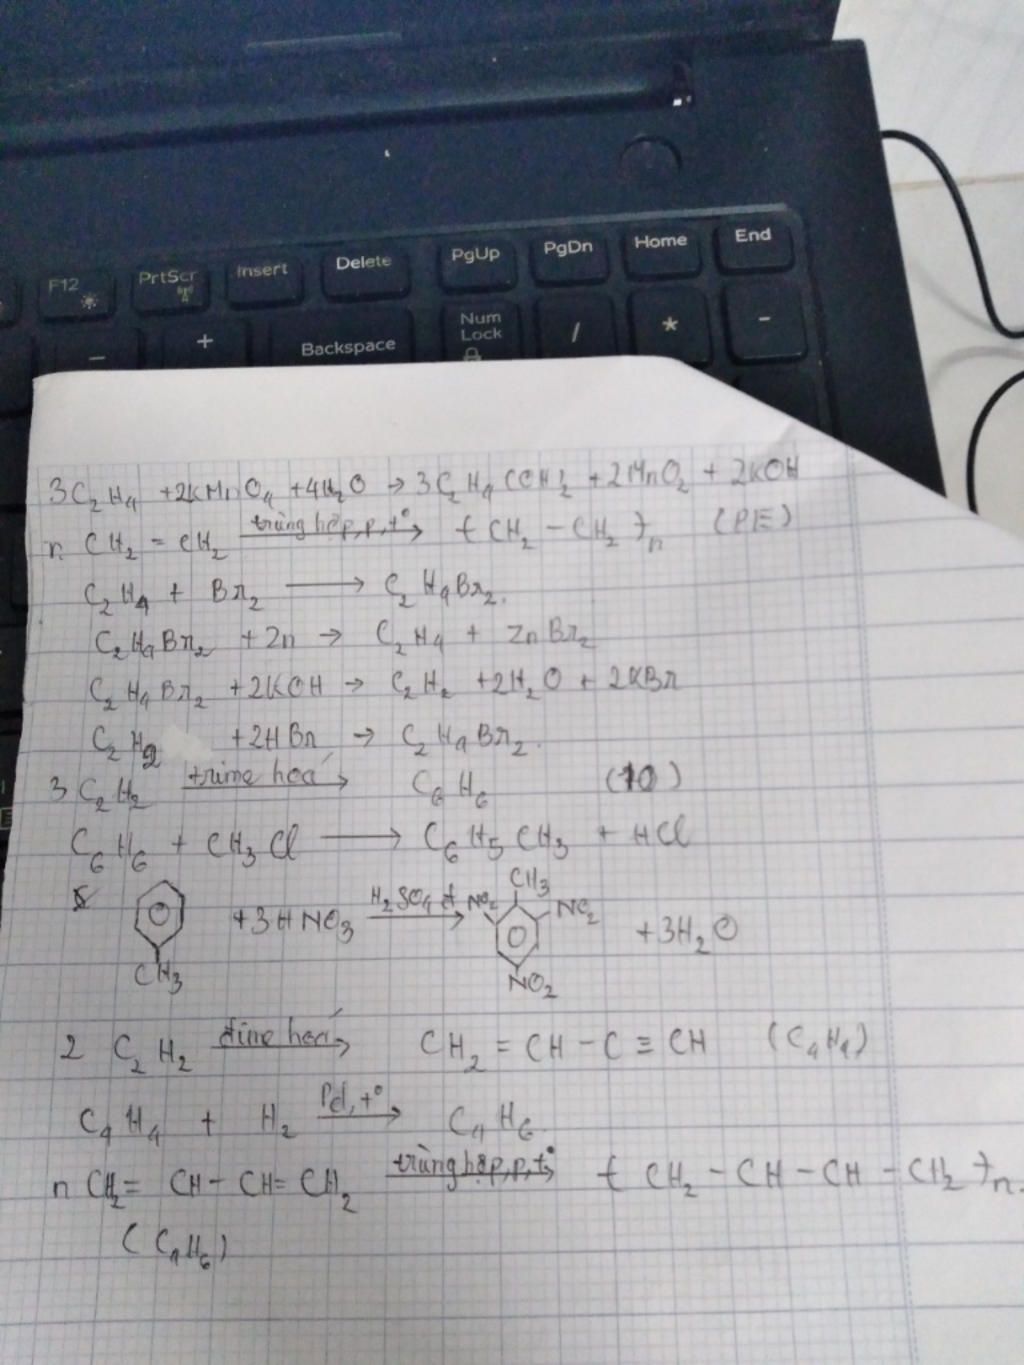 F12 PrtScr Insert Delete PgUp PgDn Home End
_ + Backspace Num Lock / * -
3C₂H₄ +2KMnO₄ +4H₂O → 3C₂H₄(OH)₂ +2MnO₂ + 2KOH
n CH₂ = CH₂ trùng hợp,p,t° → ( CH₂ – CH₂ )n (PE)
C₂H₄ + Br₂ → C₂H₄Br₂.
C₂H₄Br₂ + Zn → C₂H₄ + ZnBr₂
C₂H₄Br₂ +2KOH → C₂H₂ +2H₂O + 2KBr
C₂H₂ +2HBr → C₂H₄Br₂.
3 C₂H₂ trime hoá → C₆H₆ (10)
C₆H₆ + CH₃Cl → C₆H₅CH₃ + HCl
CH₃ +3HNO₃ H₂SO₄ đ → CH₃ NO₂ NO₂ NO₂ +3H₂O
2 C₂H₂ đime hoá → CH₂ = CH – C ≡ CH (C₄H₄)
C₄H₄ + H₂ Pd,t° → C₄H₆.
n CH₂= CH– CH= CH₂ trùng hợp,p,t° → ( CH₂ – CH – CH – CH₂ )n.
(C₄H₆)